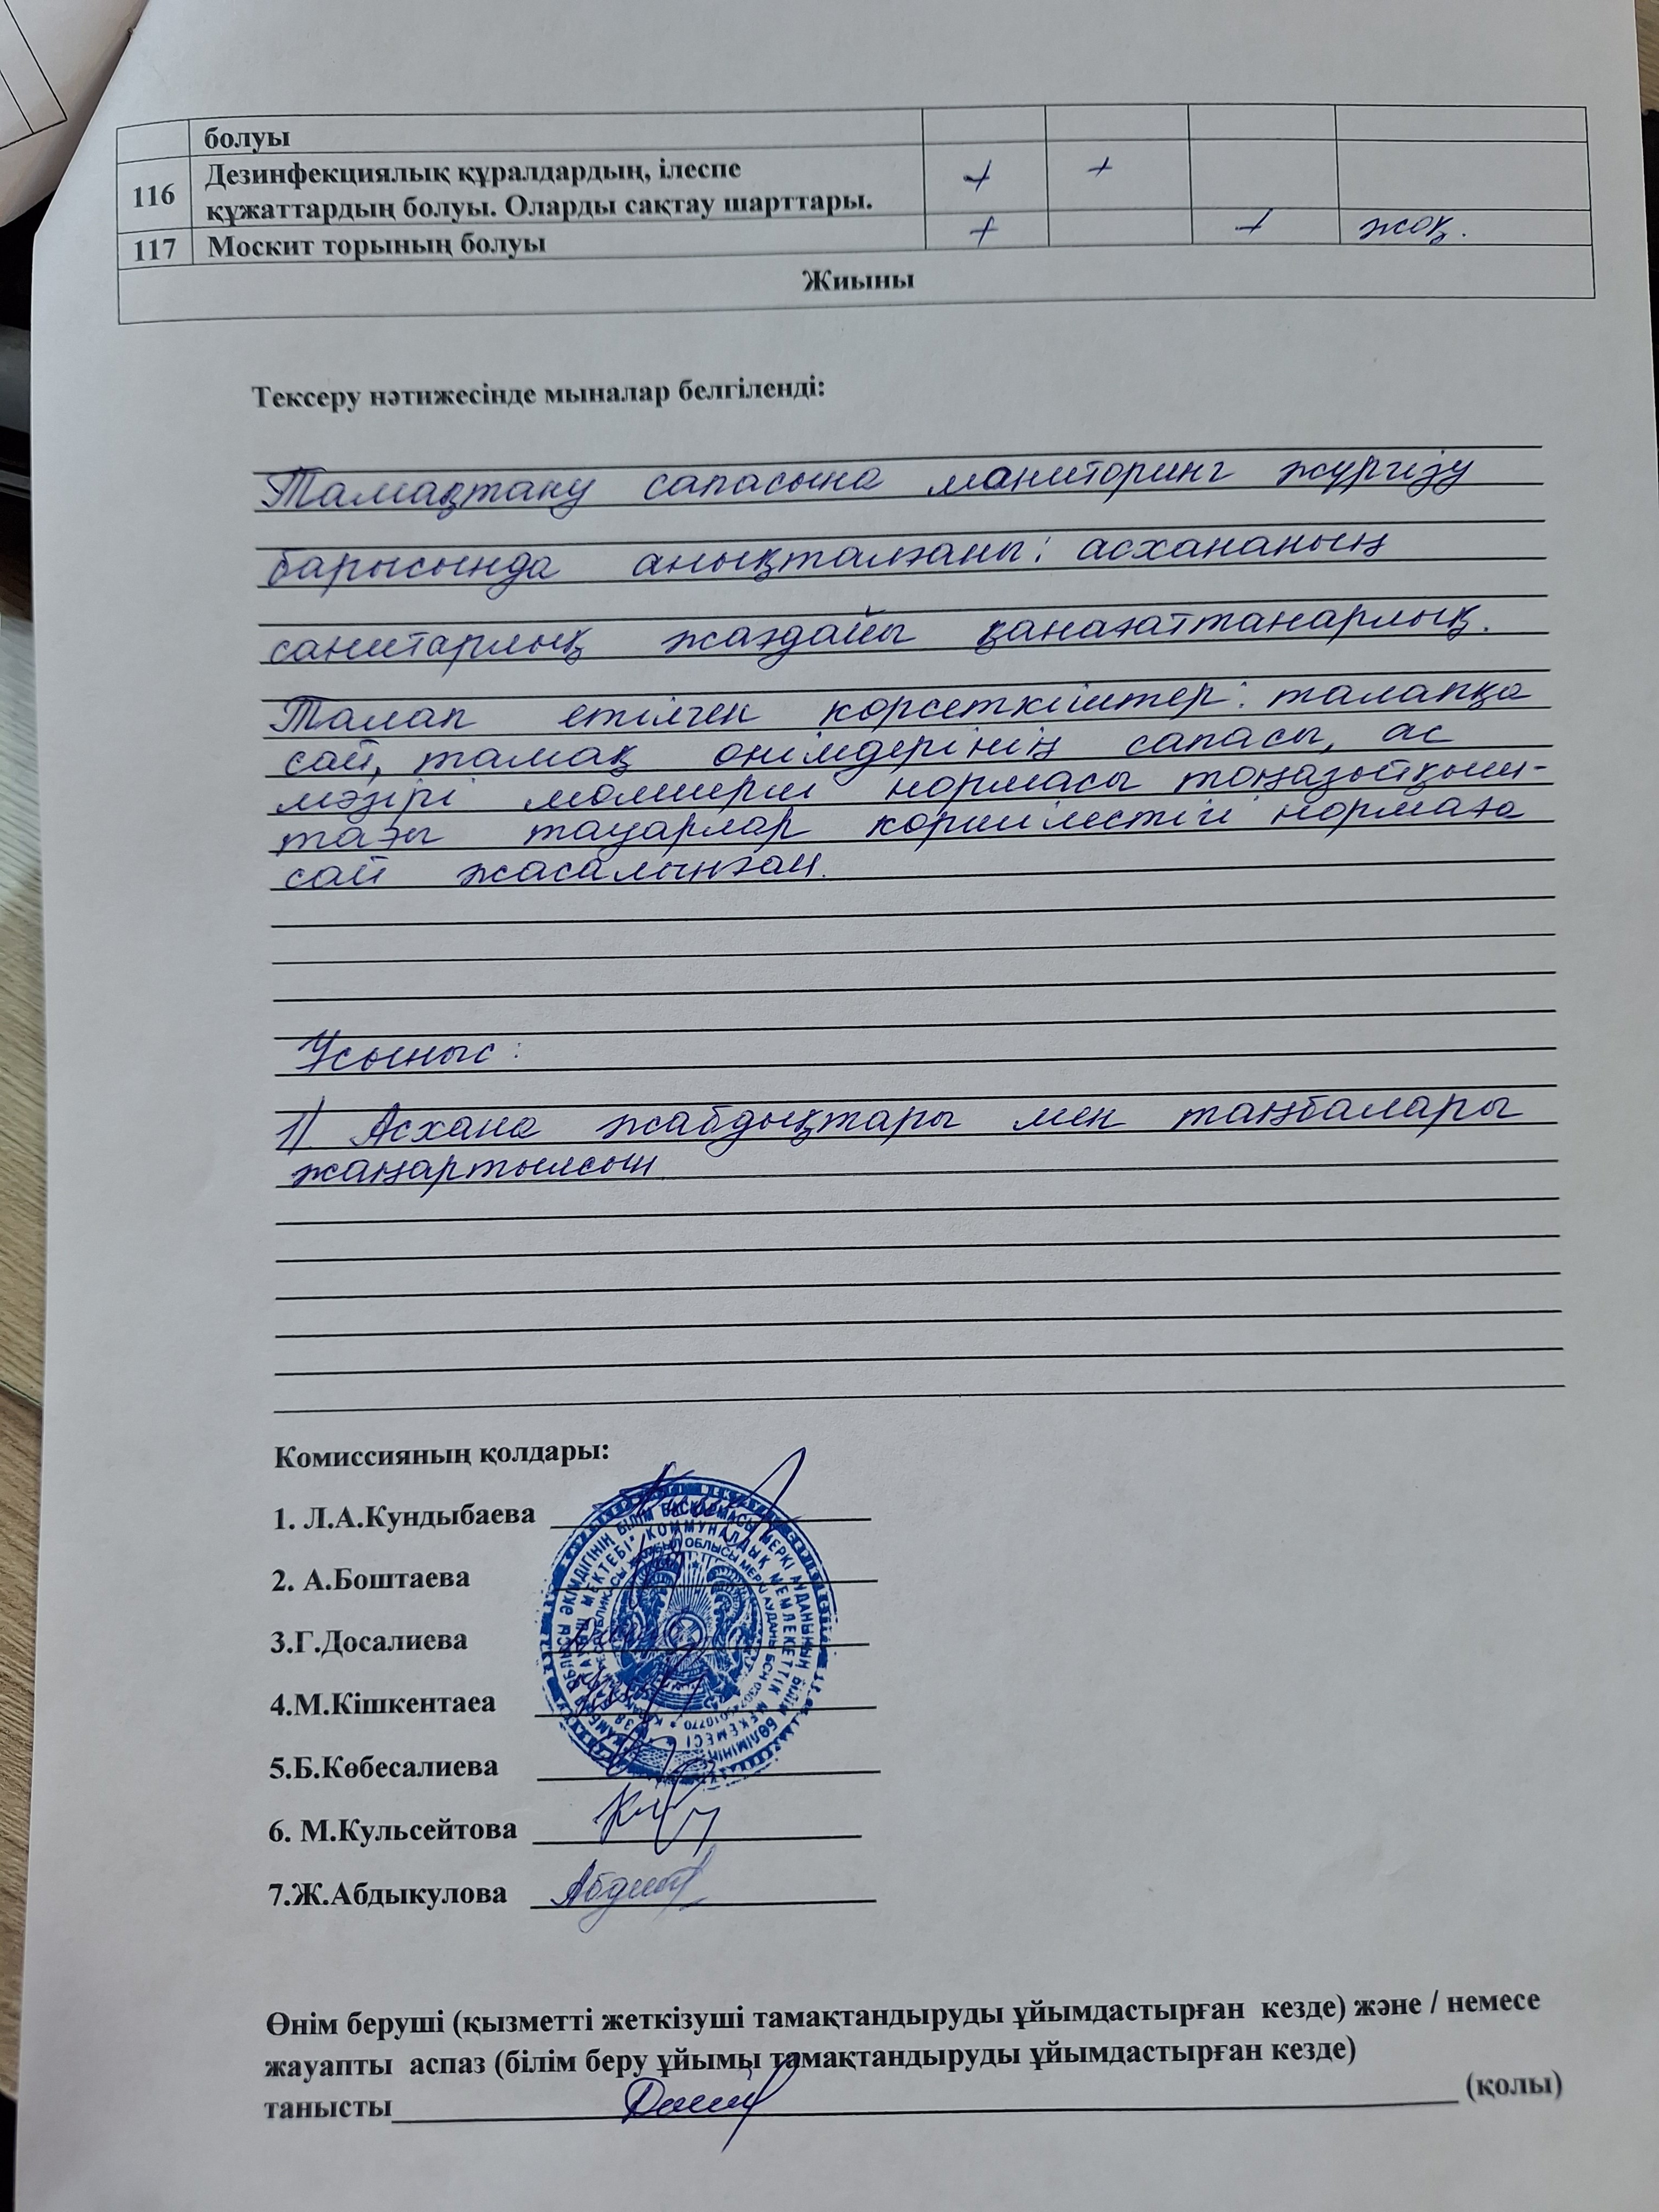 болуы
116 Дезинфекциялық құралдардың, ілеспе + +
құжаттардың болуы. Оларды сақтау шарттары.
117 Москит торының болуы + + жоқ.
Жиыны
Тексеру нәтижесінде мыналар белгіленді:
Тамақтану сапасына мониторинг жүргізу
барысында анықталғаны: асхананың
санитарлық жағдайы қанағаттанарлық.
Талап етілген көрсеткіштер: талапқа
сай, тамақ өнімдерінің сапасы, ас
мәзірі мөлшерлі нормасы тоңазытқыш-
тағы тауарлар көршілестігі нормаға
сай жасалынған.
Ұсыныс:
1) Асхана жабдықтары мен таңбалары
жаңартылсын.
Комиссияның қолдары:
1. Л.А.Кундыбаева
2. А.Боштаева
3.Г.Досалиева
4.М.Кішкентаеа
5.Б.Көбесалиева
6. М.Кульсейтова
7.Ж.Абдыкулова
Өнім беруші (қызметті жеткізуші тамақтандыруды ұйымдастырған кезде) және / немесе
жауапты аспаз (білім беру ұйымы тамақтандыруды ұйымдастырған кезде)
танысты (қолы)